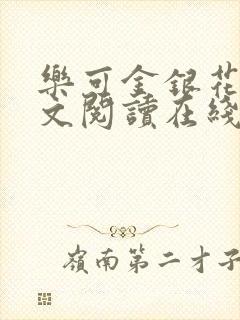 樂可金銀花
文閱讀在綫
嶺南第二才子